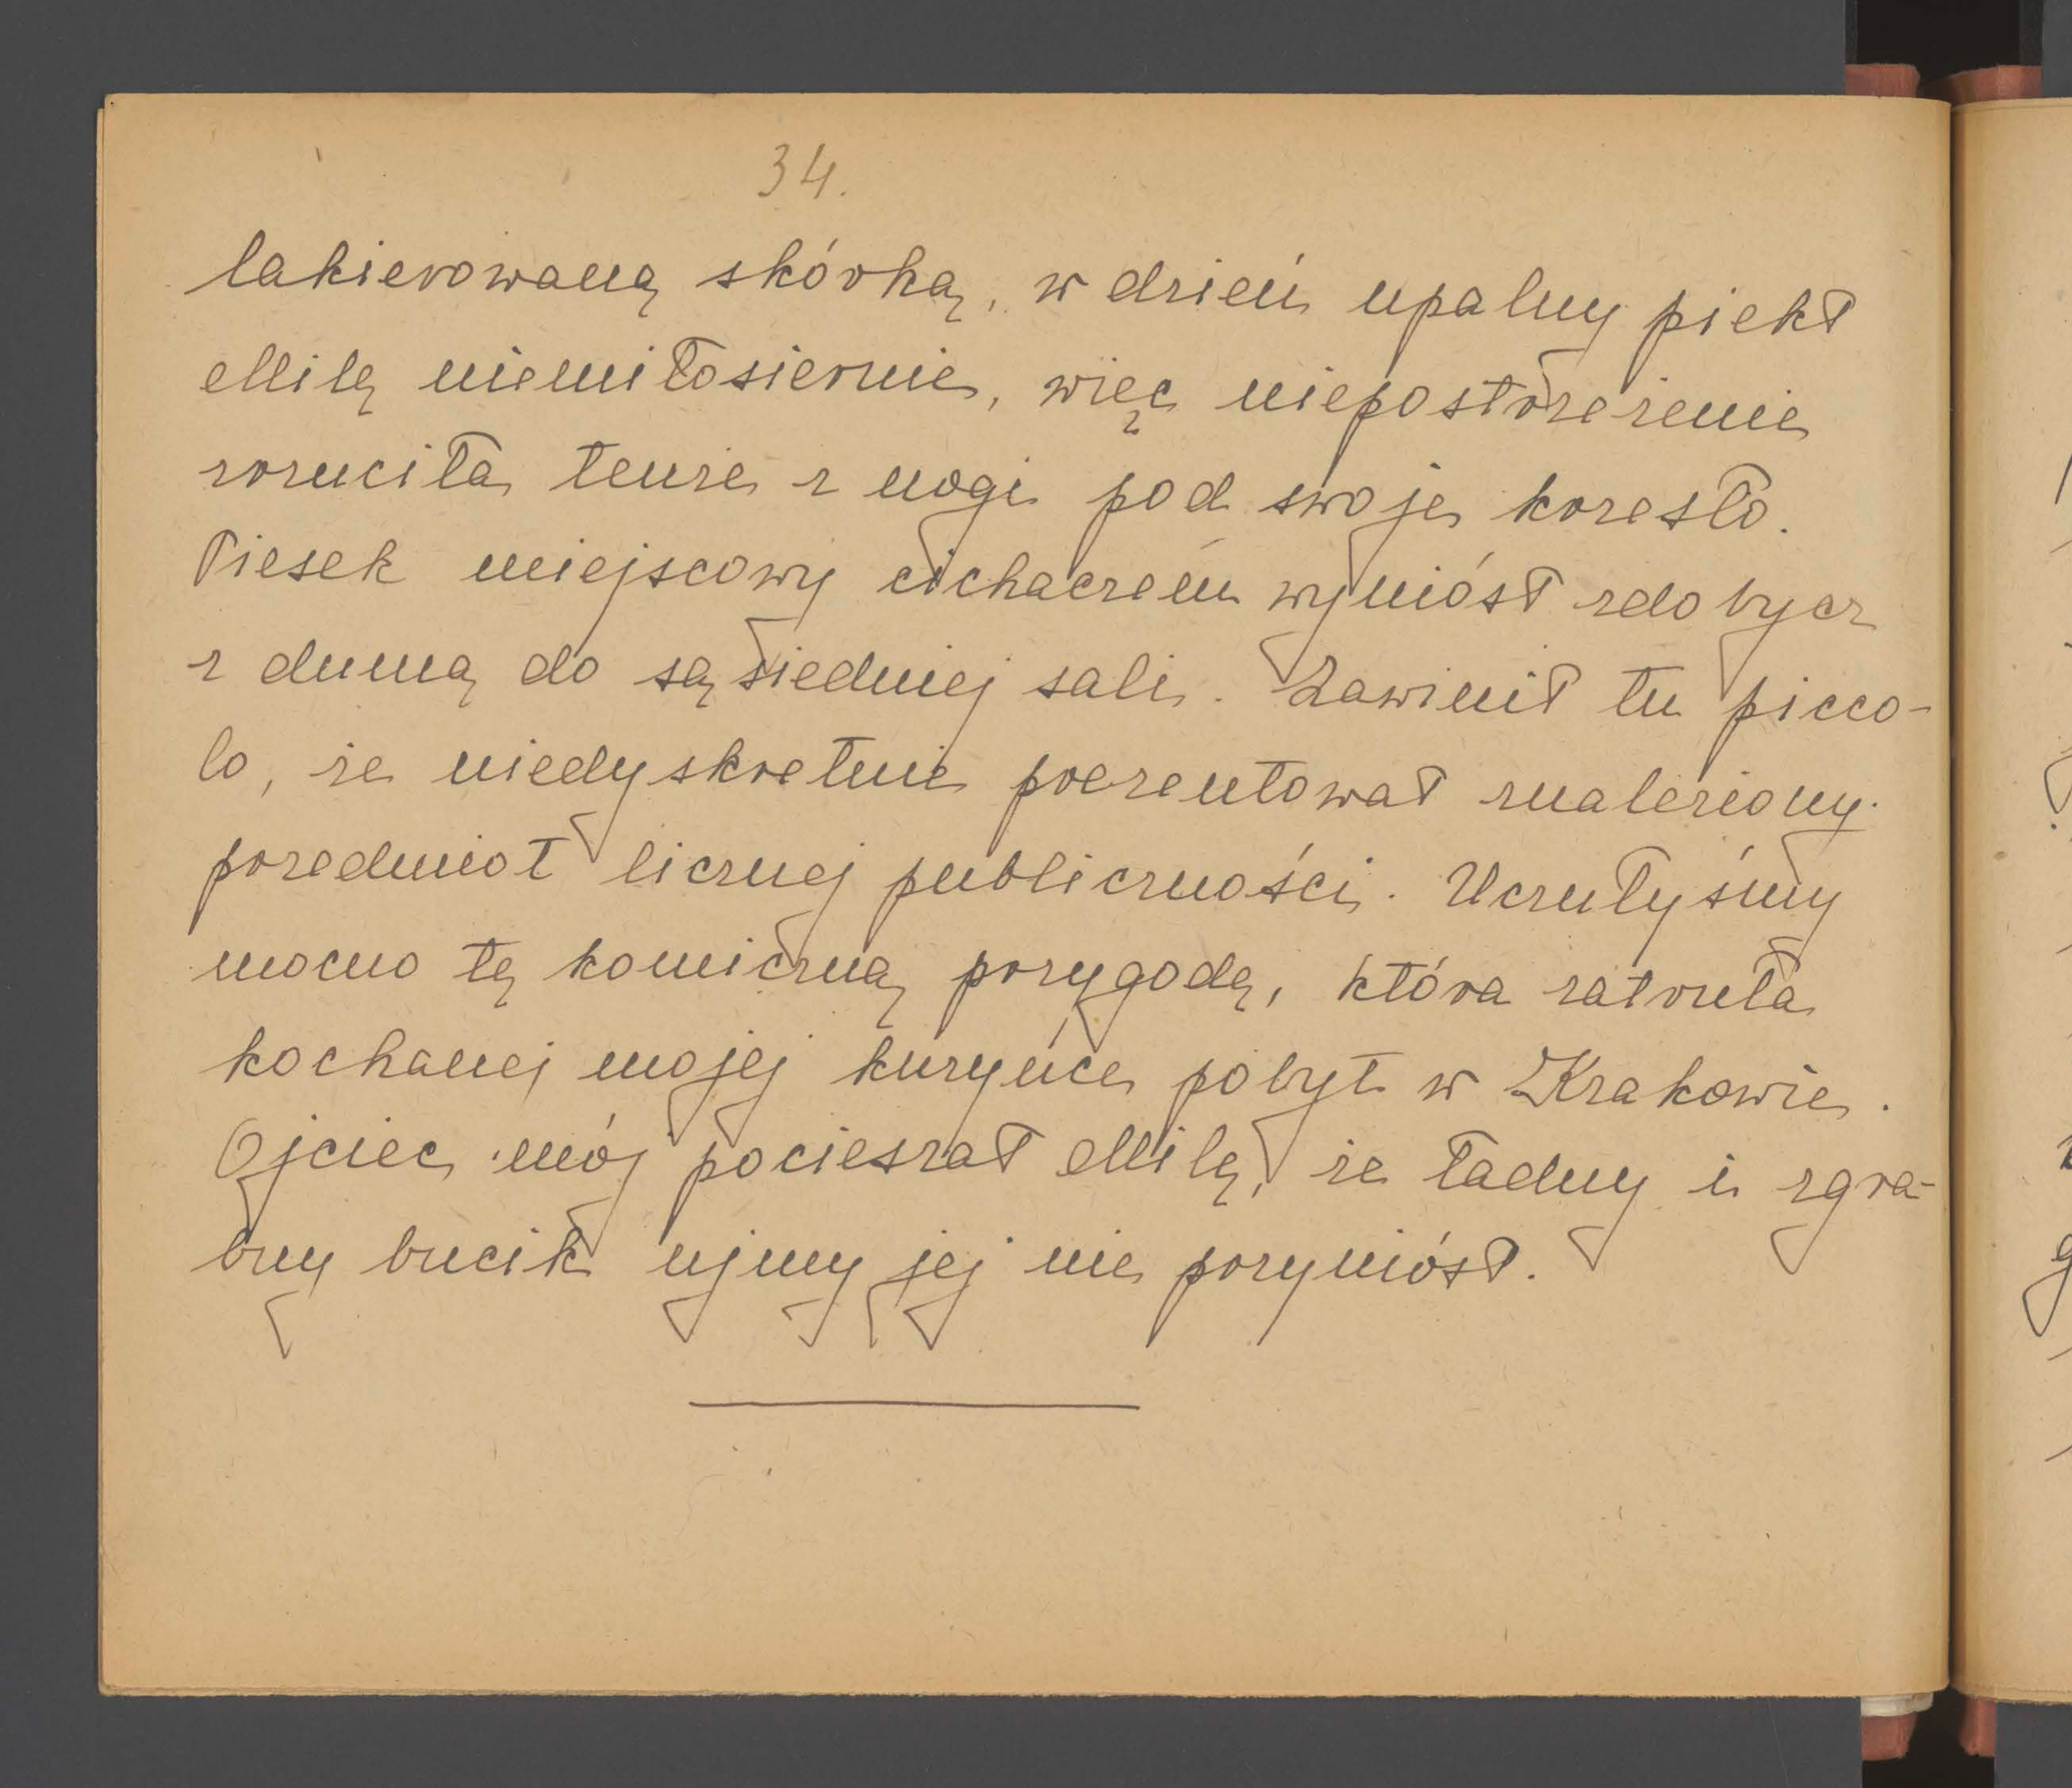 34.
lakierowaną skórką, w dzień upalny piekł
Milę niemiłosiernie, więc niepostrzeżenie
zrzuciła tenże z nogi pod swoje krzesło.
Piesek miejscowy cichaczem wyniósł zdobycz
z dumą do sąsiedniej sali. Zawinił tu picco-
lo, że niedyskretnie prezentował znaleziony
przedmiot licznej publiczności. Uczułyśmy
mocno tę komiczną przygodę, która zatruła
kochanej mojej kuzynce pobyt w Krakowie.
Ojciec mój pocieszał Milę, że ładny i zgra-
bny bucik ujmy jej nie przyniósł.